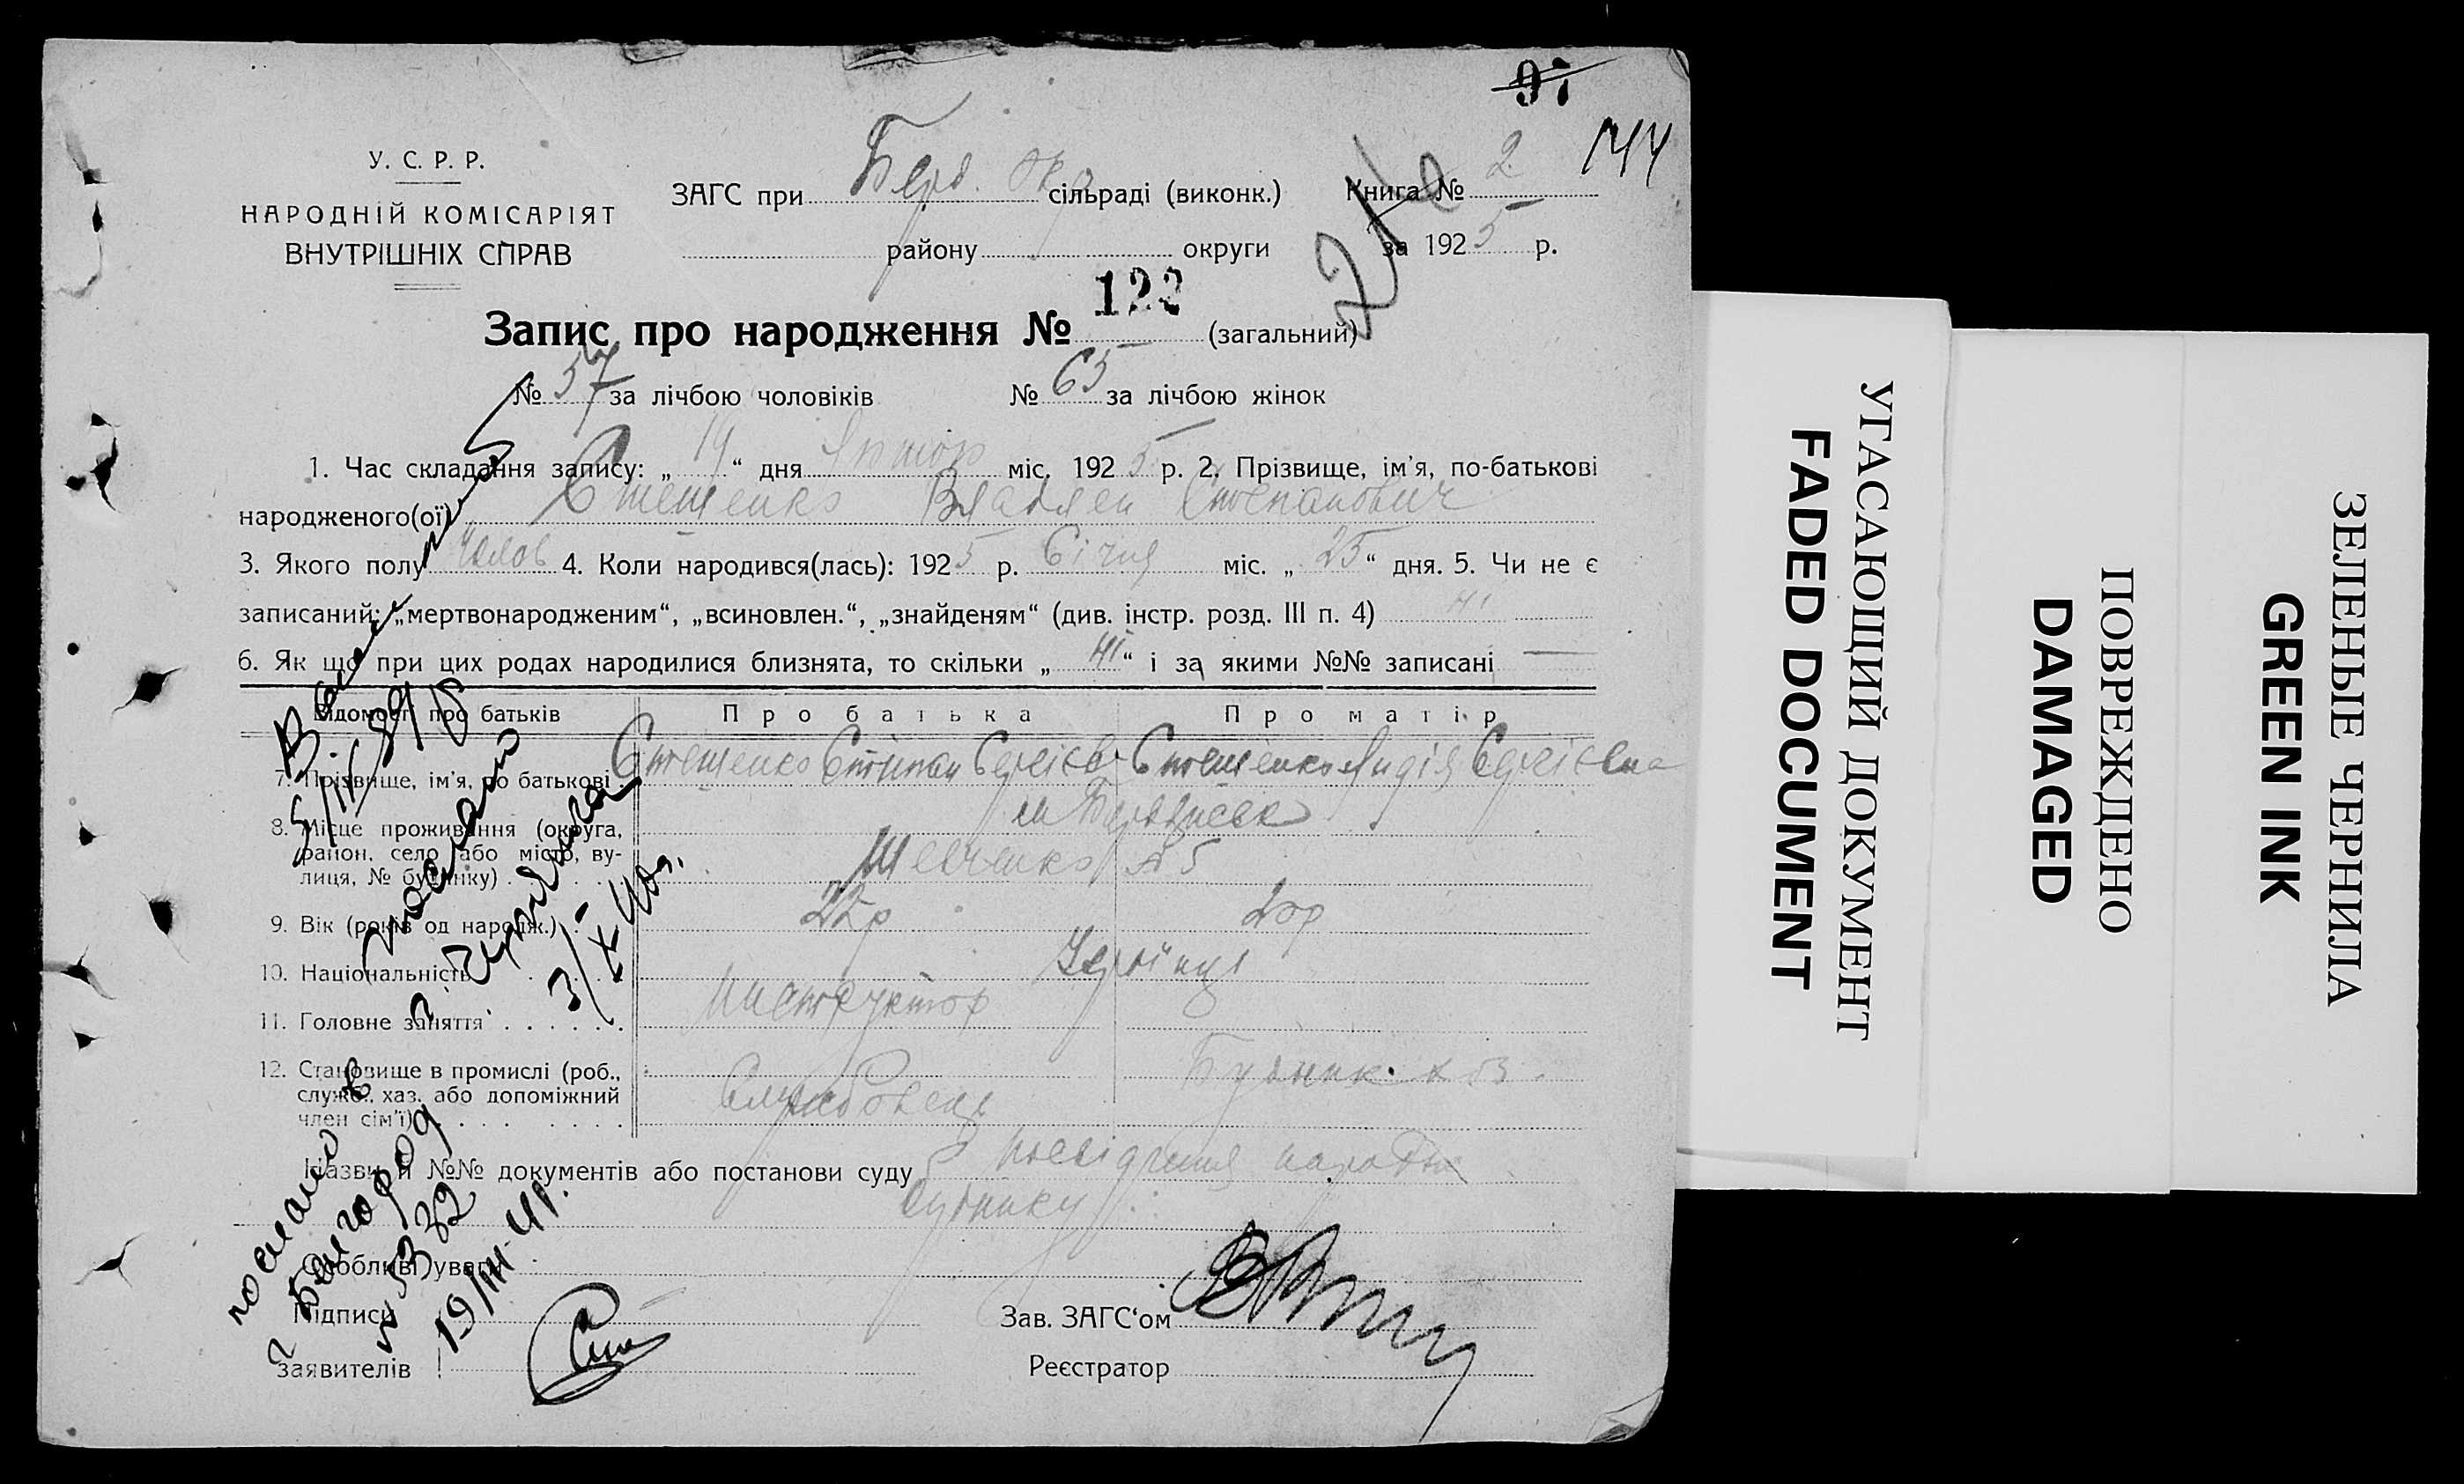 97
144
У. С. Р. Р.
НАРОДНІЙ КОМІСАРІЯТ
ВНУТРІШНІХ СПРАВ
ЗАГС при Берд. Окр сільраді (виконк.) Книга № 2
району округи за 1925 р.
Запис про народження № 122 (загальний)
№ 57 за лічбою чоловіків № 65 за лічбою жінок
1. Час складання запису: „14“ дня Лютого міс. 1925 р. 2. Прізвище, ім'я, по-батькові
народженого(ої) Стешенко Владлен Степанович
3. Якого полу Чолов 4. Коли народився(лась): 1925 р. Січня міс. „25“ дня. 5. Чи не є
записаний: „мертвонародженим“, „всиновлен.“, „знайденям“ (див. інстр. розд. III п. 4) ні
6. Як що при цих родах народилися близнята, то скільки „ні“ і за якими №№ записані —
Відомості про батьків Про батька Про матір
7. Прізвище, ім'я, по батькові . Стешенко Степан Сергієв Стешенко Лидія Сергієвна
8. Місце проживання (округа, район, село або місто, вулиця, № будинку) . м Бердянськ
Шевченко 5
9. Вік (років од народж.) . 22р 20р
10. Національність Українці
11. Головне заняття . . . . . . Инструктор
12. Становище в промислі (роб., служб., хаз. або допоміжний член сім'ї) . . . . Службовець
Назви й №№ документів або постанови суду Посвідчення
будинку
Особливі уваги
Підписи
заявителів
Зав. ЗАГС'ом
Реєстратор
послано в
г. Белгород
№ 5332
19/III-41.
УГАСАЮЩИЙ ДОКУМЕНТ
FADED DOCUMENT
ПОВРЕЖДЕНО
DAMAGED
ЗЕЛЕНЫЕ ЧЕРНИЛА
GREEN INK